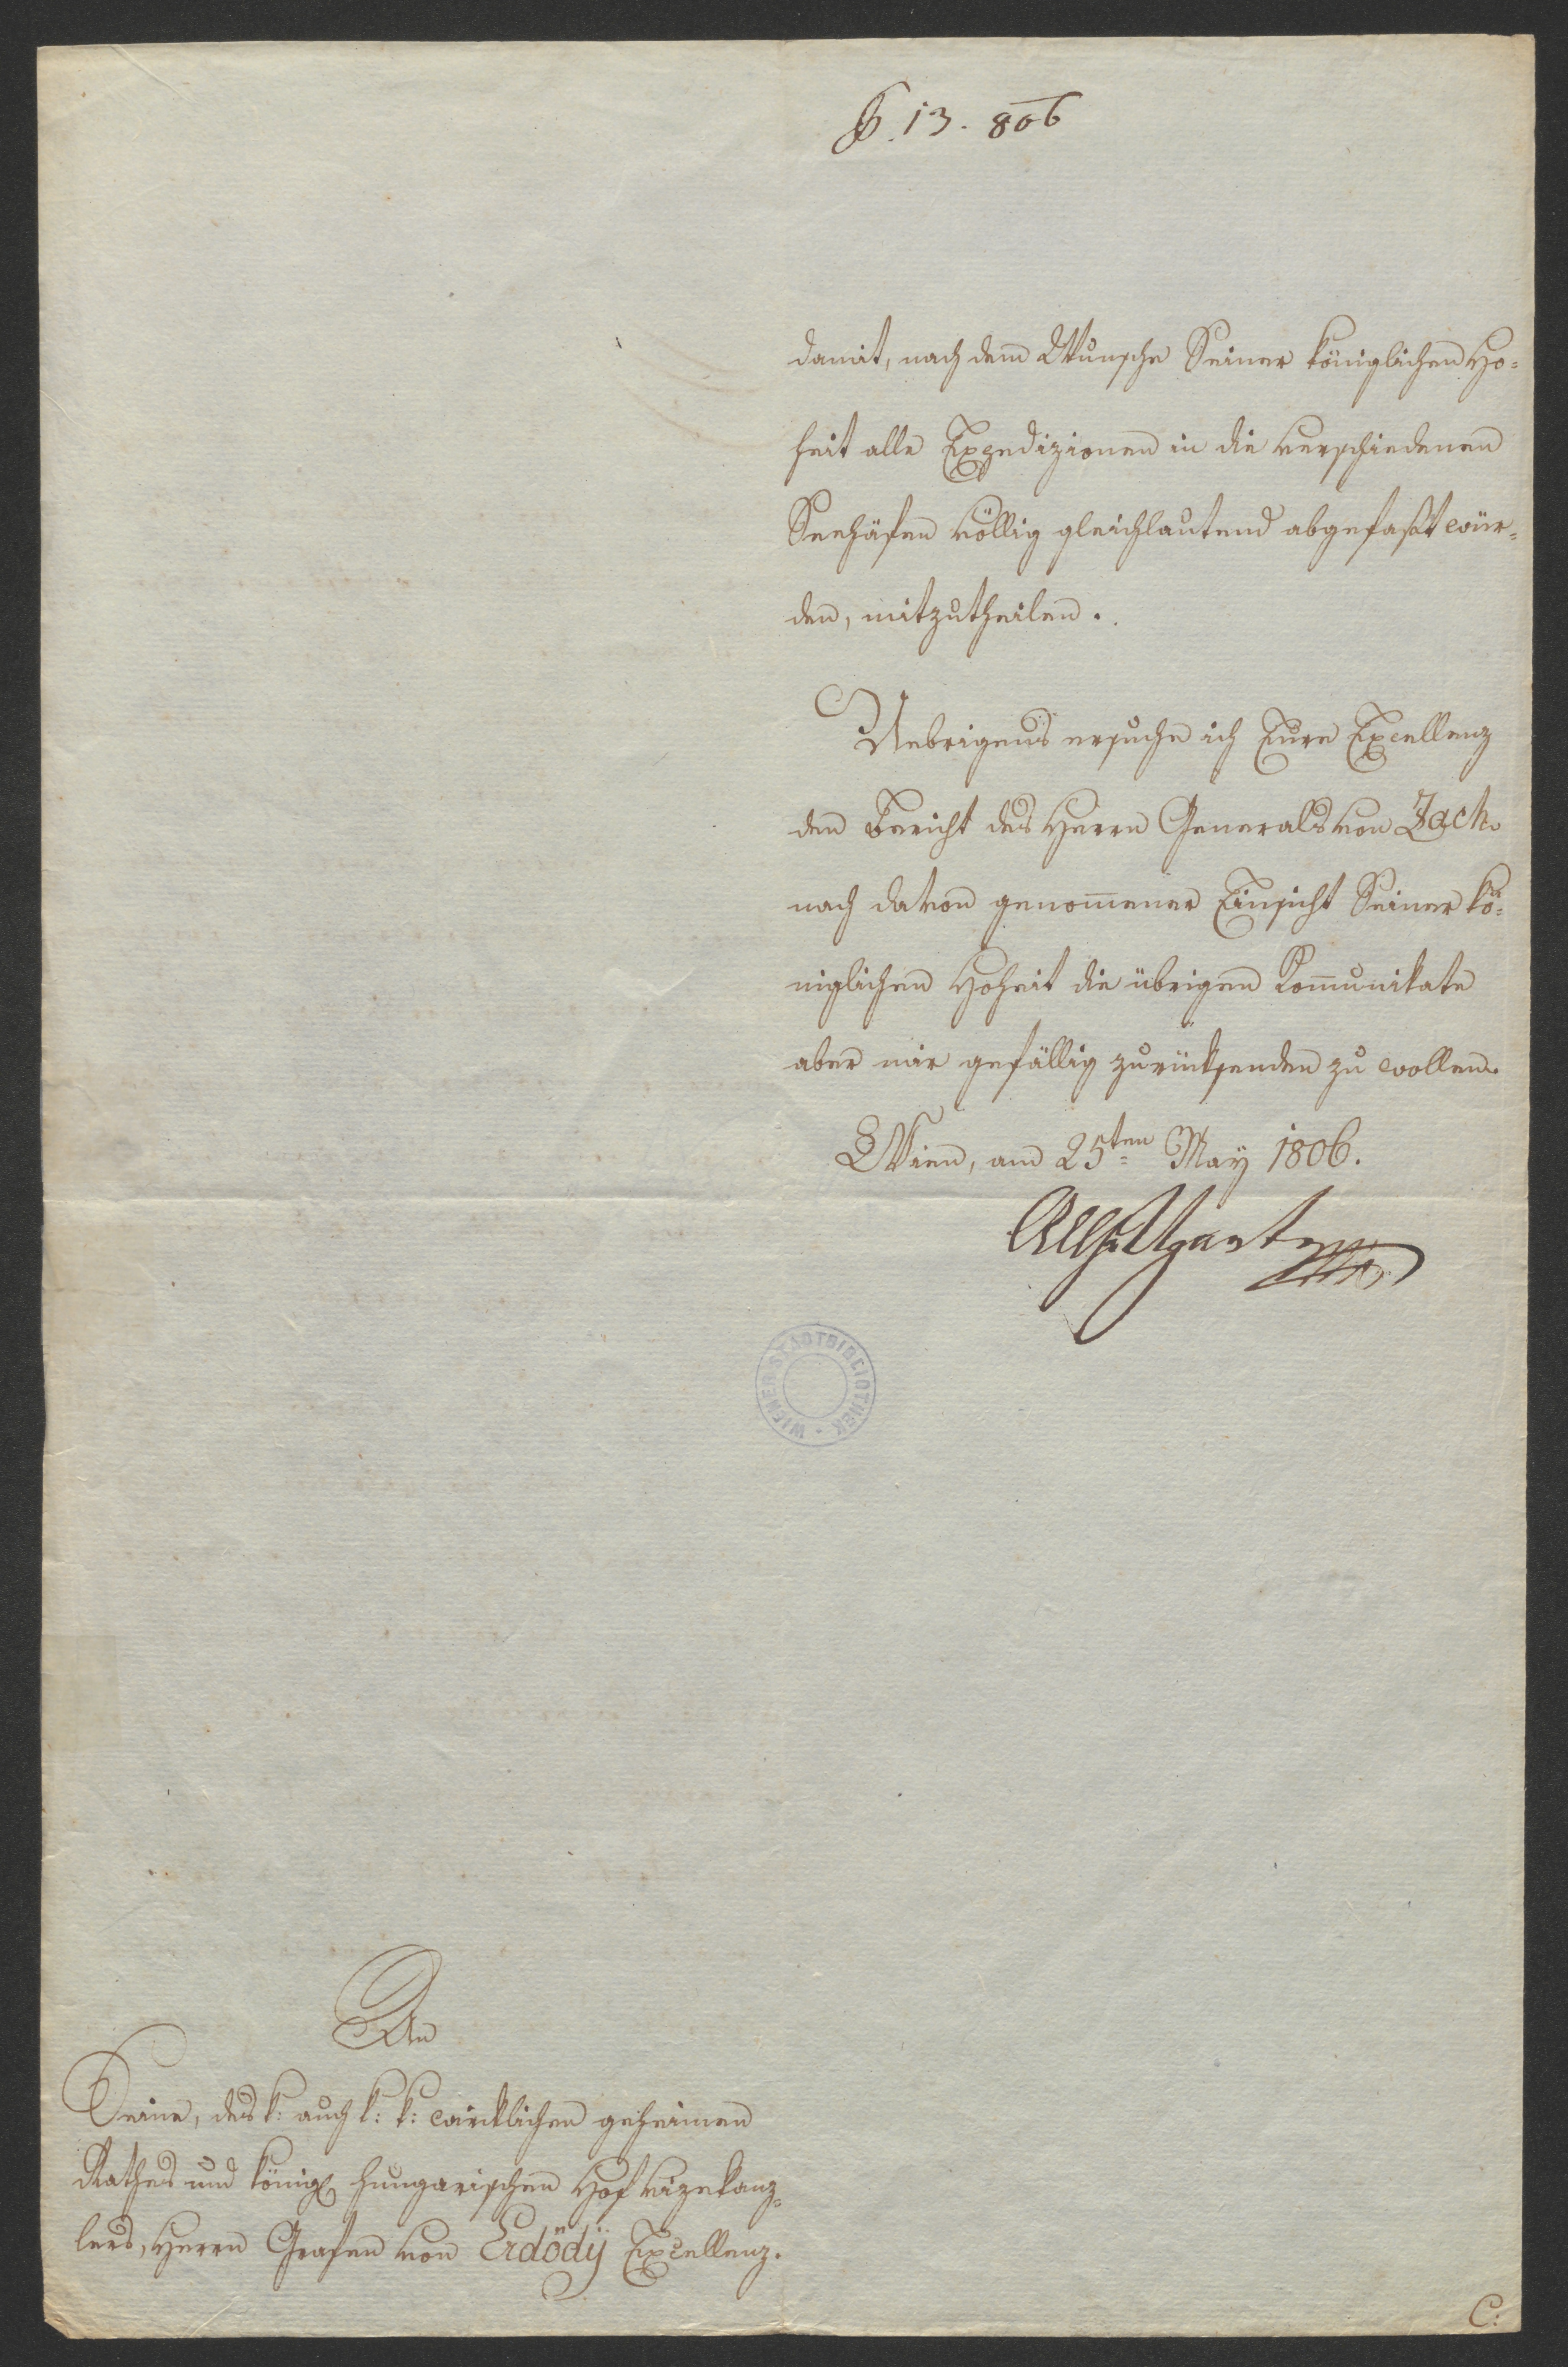 13. 806
damit, nach dem Wunsche Seiner königlichen Ho=
heit alle Expedizionen in die verschiedenen
Seehäfen völlig gleichlautend abgefaßt wür=
den, mitzutheilen.
Uebrigens ersuche ich Eure Excellenz
den Bericht des Herrn Generals von Zach.
nach davon genommener Einsicht Seiner kö=
niglichen Hoheit die übrigen Kommunikate
aber mir gefällig zurüksenden zu wollen.
Wien, am 25ten May 1806.
Ugarte
WIENER STADTBIBLIOTHEK
An
Seine, des k: auch k: k: wirklichen geheimen
Rathes und königl hungarischen Hof Vizekanz=
lers, Herrn Grafen von Erdödÿ Excellenz.
C: